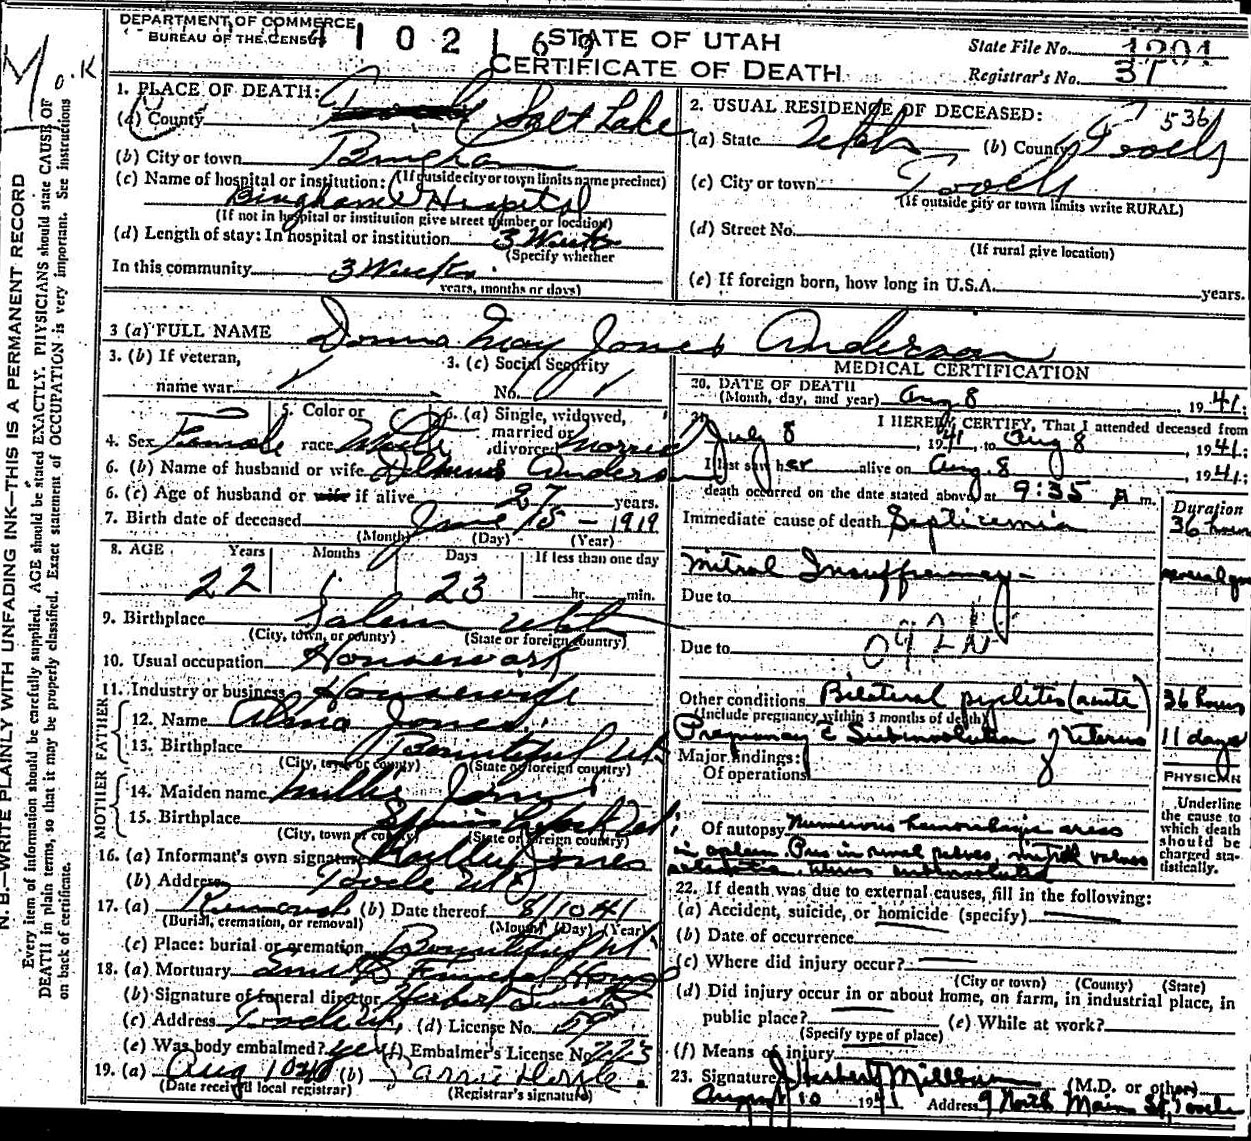 DEPARTMENT OF COMMERCE
BUREAU OF THE CENSUS
STATE OF UTAH
CERTIFICATE OF DEATH
State File No. 1201
Registrar's No. 31
O.K
N. B.—WRITE PLAINLY WITH UNFADING INK—THIS IS A PERMANENT RECORD
Every item of information should be carefully supplied. AGE should be stated EXACTLY. PHYSICIANS should state CAUSE OF
DEATH in plain terms, so that it may be properly classified. Exact statement of OCCUPATION is very important. See instructions
on back of certificate.
1. PLACE OF DEATH:
(a) County Salt Lake
(b) City or town Bingham
(If outside city or town limits name precinct)
(c) Name of hospital or institution:
Bingham Hospital
(If not in hospital or institution give street number or location)
(d) Length of stay: In hospital or institution 3 Weeks
(Specify whether
In this community 3 Weeks
years, months or days)
2. USUAL RESIDENCE OF DECEASED:
536
(a) State Utah (b) County Tooele
(c) City or town Tooele
(If outside city or town limits write RURAL)
(d) Street No.
(If rural give location)
(e) If foreign born, how long in U.S.A. years.
3 (a) FULL NAME Donna May Jones Anderson
3. (b) If veteran,
name war
3. (c) Social Security
No.
4. Sex Female
5. Color or
race White
6. (a) Single, widowed,
married or
divorced Married
6. (b) Name of husband or wife Anderson
6. (c) Age of husband or wife if alive 27 years.
7. Birth date of deceased June 15 - 1919
(Month) (Day) (Year)
8. AGE Years Months Days If less than one day
22 1 23 hr. min.
9. Birthplace Salem Utah
(City, town, or county) (State or foreign country)
10. Usual occupation Housework
11. Industry or business Housewife
FATHER
12. Name Alma Jones
13. Birthplace Bountiful Ut
(City, town or county) (State or foreign country)
MOTHER
14. Maiden name Millie Jones
15. Birthplace
(City, town or county) (State or foreign country)
16. (a) Informant's own signature Jones
(b) Address Tooele Ut
17. (a) Removal (b) Date thereof 8/10 41
(Burial, cremation, or removal) (Month) (Day) (Year)
(c) Place: burial or cremation Bountiful Ut
18. (a) Mortuary Funeral Home
(b) Signature of funeral director Herbert
(c) Address Tooele Ut, (d) License No. 59
(e) Was body embalmed? yes (f) Embalmer's License No. 223
19. (a) Aug 10 (b)
(Date received local registrar) (Registrar's signature)
MEDICAL CERTIFICATION
20. DATE OF DEATH
(Month, day, and year) Aug 8 1941;
21. I HEREBY CERTIFY, That I attended deceased from
July 8, 1941, to Aug 8, 1941;
I last saw her alive on Aug. 8, 1941;
death occurred on the date stated above, at 9:35 A m.
Duration
Immediate cause of death Septicemia 36 hours
Mitral Insufficiency -
Due to
Due to 092
Other conditions Bilateral pyelitis (acute) 36 hours
(Include pregnancy within 3 months of death)
Pregnancy c Subinvolution of Uterus 11 days
Major findings:
Of operations
PHYSICIAN
Underline
the cause to
which death
should be
charged sta-
tistically.
Of autopsy Numerous hemorrhagic areas
in spleen. Pus in renal pelves, mitral valves
22. If death was due to external causes, fill in the following:
(a) Accident, suicide, or homicide (specify)
(b) Date of occurrence
(c) Where did injury occur?
(City or town) (County) (State)
(d) Did injury occur in or about home, on farm, in industrial place, in
public place? (e) While at work?
(Specify type of place)
(f) Means of injury
23. Signature J Herbert Millburn (M.D. or other)
August 10 1941 Address 9 North Main St, Tooele